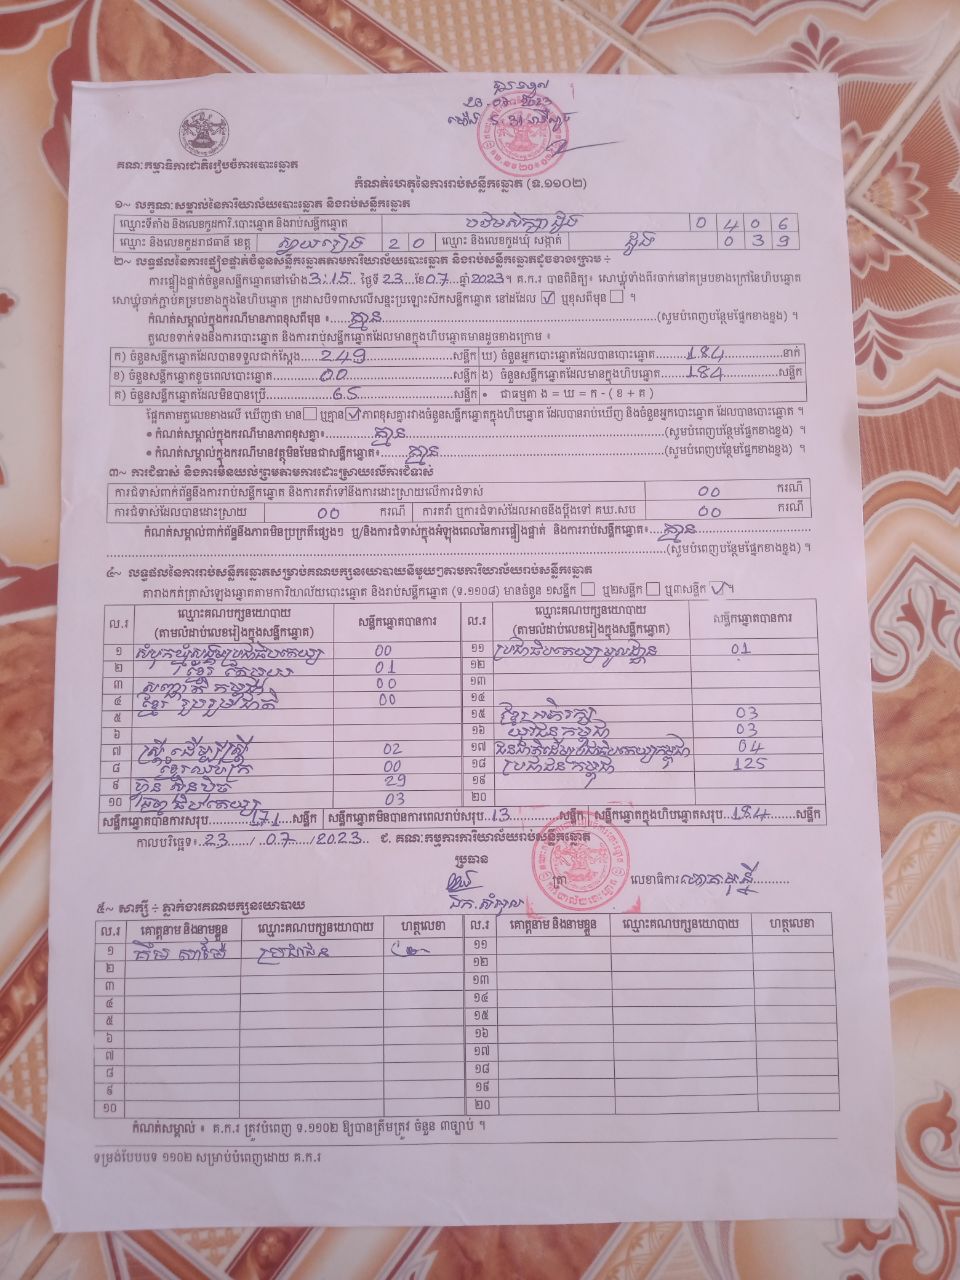 គណៈកម្មាធិការជាតិរៀបចំការបោះឆ្នោត
កំណត់ហេតុនៃការរាប់សន្លឹកឆ្នោត (ទ.១១០២)
១~ លក្ខណៈសម្គាល់នៃការិយាល័យបោះឆ្នោត និងរាប់សន្លឹកឆ្នោត
ឈ្មោះទីតាំង និងលេខកូដការិ.បោះឆ្នោត និងរាប់សន្លឹកឆ្នោត 0 4 0 6
ឈ្មោះ និងលេខកូដរាជធានី ខេត្ត ស្វាយរៀង 2 0 ឈ្មោះ និងលេខកូដឃុំ សង្កាត់ 0 3 9
២~ លទ្ធផលនៃការផ្ទៀងផ្ទាត់ចំនួនសន្លឹកឆ្នោតតាមការិយាល័យបោះឆ្នោត និងរាប់សន្លឹកឆ្នោតដូចខាងក្រោម ÷
ការផ្ទៀងផ្ទាត់ចំនួនសន្លឹកឆ្នោតនៅម៉ោង 3:15 ថ្ងៃទី 23 ខែ 07 ឆ្នាំ 2023។ គ.ក.រ បានពិនិត្យ៖ សោឃ្លុំទាំងពីរចាក់នៅគម្របខាងក្រៅនៃហិបឆ្នោត
សោឃ្លុំចាក់ភ្ជាប់គម្របខាងក្នុងនៃហិបឆ្នោត ក្រដាសបិទពាសលើសន្ទះប្រឡោះស៊កសន្លឹកឆ្នោត នៅដដែល ☑ ឬខុសពីមុន ☐ ។
កំណត់សម្គាល់ក្នុងករណីមានភាពខុសពីមុន ៖ គ្មាន (សូមបំពេញបន្ថែមផ្នែកខាងខ្នង) ។
តួលេខទាក់ទងនឹងការបោះឆ្នោត និងការរាប់សន្លឹកឆ្នោតដែលមានក្នុងហិបឆ្នោតមានដូចខាងក្រោម ៖
ក) ចំនួនសន្លឹកឆ្នោតដែលបានទទួលជាក់ស្តែង 249 សន្លឹក ឃ) ចំនួនអ្នកបោះឆ្នោតដែលបានបោះឆ្នោត 184 នាក់
ខ) ចំនួនសន្លឹកឆ្នោតខូចពេលបោះឆ្នោត 00 សន្លឹក ង) ចំនួនសន្លឹកឆ្នោតដែលមានក្នុងហិបឆ្នោត 184 សន្លឹក
គ) ចំនួនសន្លឹកឆ្នោតដែលមិនបានប្រើ 65 សន្លឹក • ជាធម្មតា ង = ឃ = ក - ( ខ + គ )
ផ្អែកតាមតួលេខខាងលើ ឃើញថា មាន ☐ ឬគ្មាន ☑ ភាពខុសគ្នារវាងចំនួនសន្លឹកឆ្នោតក្នុងហិបឆ្នោត ដែលបានរាប់ឃើញ និងចំនួនអ្នកបោះឆ្នោត ដែលបានបោះឆ្នោត ។
• កំណត់សម្គាល់ក្នុងករណីមានភាពខុសគ្នា៖ គ្មាន (សូមបំពេញបន្ថែមផ្នែកខាងខ្នង) ។
• កំណត់សម្គាល់ក្នុងករណីមានវត្ថុមិនមែនជាសន្លឹកឆ្នោត៖ គ្មាន (សូមបំពេញបន្ថែមផ្នែកខាងខ្នង) ។
៣~ ការជំទាស់ និងការមិនយល់ព្រមតាមការដោះស្រាយលើការជំទាស់
ការជំទាស់ពាក់ព័ន្ធនឹងការរាប់សន្លឹកឆ្នោត និងការតវ៉ាទៅនឹងការដោះស្រាយលើការជំទាស់ 00 ករណី
ការជំទាស់ដែលបានដោះស្រាយ 00 ករណី ការតវ៉ា ឬការជំទាស់ដែលអាចនឹងប្តឹងទៅ គឃ.សប 00 ករណី
កំណត់សម្គាល់ពាក់ព័ន្ធនឹងភាពមិនប្រក្រតីផ្សេងៗ ឬ/និងការជំទាស់ក្នុងអំឡុងពេលនៃការផ្ទៀងផ្ទាត់ និងការរាប់សន្លឹកឆ្នោត៖ គ្មាន
(សូមបំពេញបន្ថែមផ្នែកខាងខ្នង) ។
៤~ លទ្ធផលនៃការរាប់សន្លឹកឆ្នោតសម្រាប់គណបក្សនយោបាយនីមួយៗតាមការិយាល័យរាប់សន្លឹកឆ្នោត
តារាងកត់ត្រាស់ឡេងឆ្នោតតាមការិយាល័យបោះឆ្នោត និងរាប់សន្លឹកឆ្នោត (ទ.១១០៨) មានចំនួន ១សន្លឹក ☐ ឬ២សន្លឹក ☐ ឬ៣សន្លឹក ☑ ។
ល.រ ឈ្មោះគណបក្សនយោបាយ (តាមលំដាប់លេខរៀងក្នុងសន្លឹកឆ្នោត) សន្លឹកឆ្នោតបានការ ល.រ ឈ្មោះគណបក្សនយោបាយ (តាមលំដាប់លេខរៀងក្នុងសន្លឹកឆ្នោត) សន្លឹកឆ្នោតបានការ
១ សំបុកឃ្មុំសង្គមប្រជាធិបតេយ្យ 00 ១១ ប្រជាធិបតេយ្យមូលដ្ឋាន 01
២ ខ្មែរតែមួយ 01 ១២
៣ សញ្ជាតិកម្ពុជា 00 ១៣
៤ ខ្មែររួបរួមជាតិ 00 ១៤
៥ ១៥ ខ្មែរអភិរក្ស 03
៦ ១៦ យុវជនកម្ពុជា 03
៧ ស្ត្រីដើម្បីស្ត្រី 02 ១៧ ជនជាតិដើមប្រជាធិបតេយ្យកម្ពុជា 04
៨ ខ្មែរឈប់ក្រ 00 ១៨ ប្រជាជនកម្ពុជា 125
៩ ហ៊្វុនស៊ិនប៉ិច 29 ១៩
១០ ធម្មាធិបតេយ្យ 03 ២០
សន្លឹកឆ្នោតបានការសរុប 171 សន្លឹក សន្លឹកឆ្នោតមិនបានការពេលរាប់សរុប 13 សន្លឹក សន្លឹកឆ្នោតក្នុងហិបឆ្នោតសរុប 184 សន្លឹក
កាលបរិច្ឆេទ៖ 23 / 07 / 2023 ជ. គណៈកម្មការការិយាល័យរាប់សន្លឹកឆ្នោត
ប្រធាន
ត្រា លេខាធិការ
៥~ សាក្សី ÷ ភ្នាក់ងារគណបក្សនយោបាយ
ល.រ គោត្តនាម និងនាមខ្លួន ឈ្មោះគណបក្សនយោបាយ ហត្ថលេខា ល.រ គោត្តនាម និងនាមខ្លួន ឈ្មោះគណបក្សនយោបាយ ហត្ថលេខា
១ ប្រជាជន ១១
២ ១២
៣ ១៣
៤ ១៤
៥ ១៥
៦ ១៦
៧ ១៧
៨ ១៨
៩ ១៩
១០ ២០
កំណត់សម្គាល់ ៖ គ.ក.រ ត្រូវបំពេញ ទ.១១០២ ឱ្យបានត្រឹមត្រូវ ចំនួន ៣ច្បាប់ ។
ទម្រង់បែបបទ ១១០២ សម្រាប់បំពេញដោយ គ.ក.រ